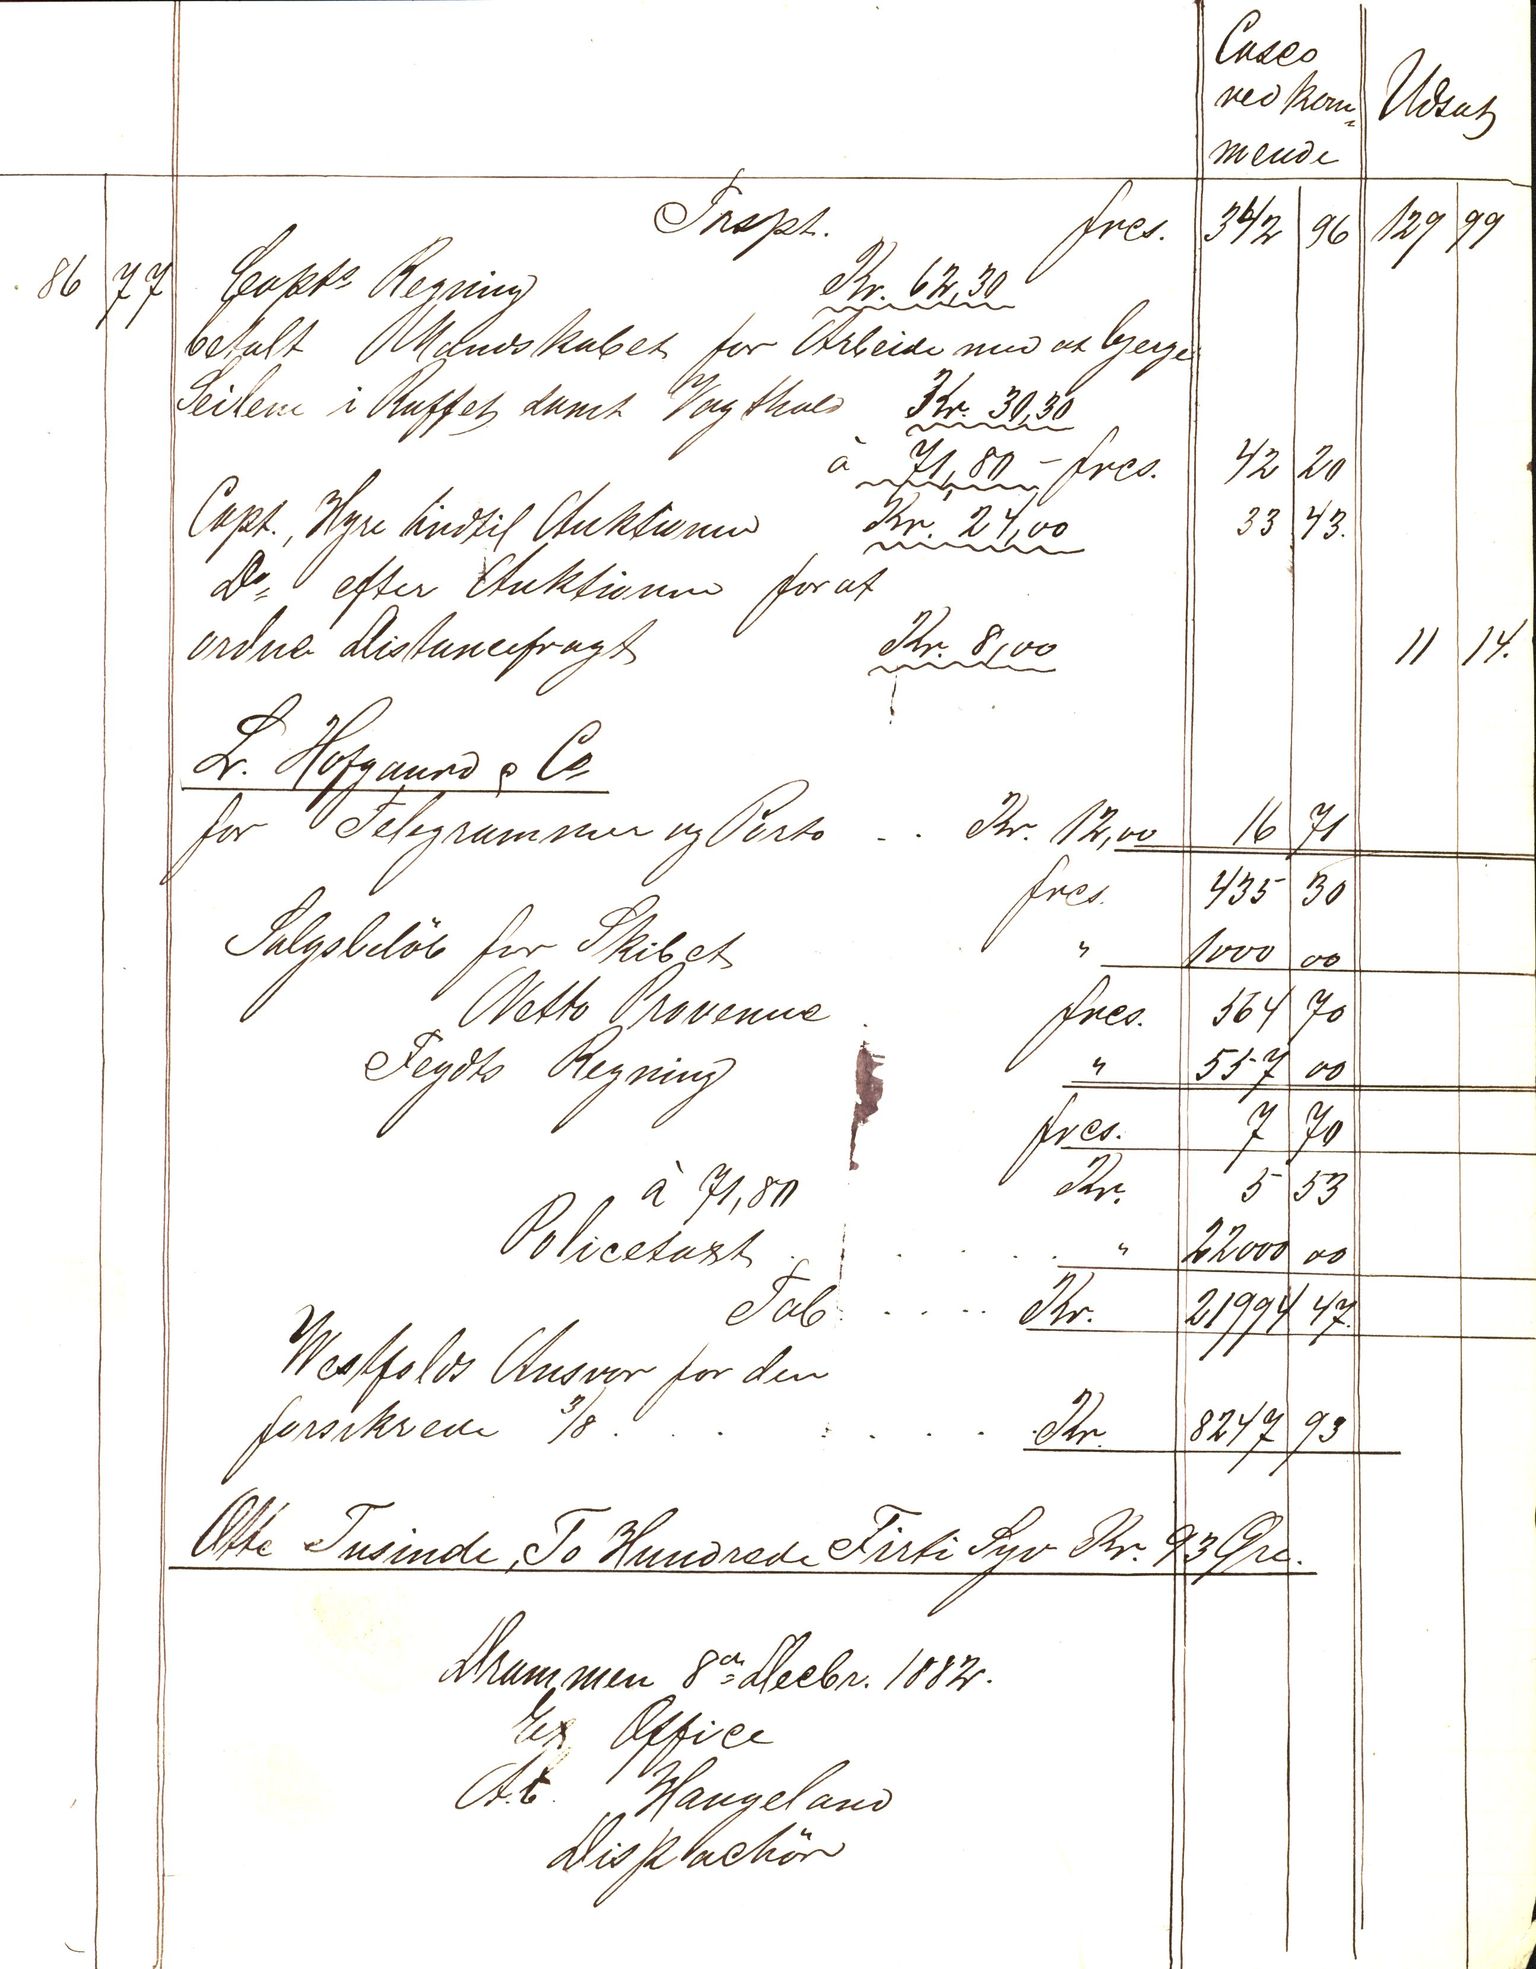 Casco
vedkom-
mende
Udsat
Trspt. frcs. 342 96 129 99
86 77 Capts Regning Kr. 62,30
betalt Mandskabet for Arbeide med at berge
Seilene i Ruffet samt Vagthold Kr. 30,30
à 71,80 - frcs. 42 20
Capt., Hyre indtil Auktionen Kr. 24,00 33 43.
Do efter Auktionen for at
ordne Distancefragt Kr. 8,00 11 14.
L. Hofgaard & Co
for Telegrammer og Porto . . Kr. 12,00 16 71
frcs. 435 30
Salgsbelöb for Skibet " 1000 00
Netto Provenue frcs. 564 70
Feydts Regning " 557 00
frcs. 7 70
à 71,80 Kr. 5 53
Policetaxt . . . . . " 22000 00
Tab . . . . . Kr. 21994 47.
Westfolds Ansvar for den
forsikrede 3/8 . . . . . . . Kr. 8247 93
Otte Tusinde, To Hundrede Firti Syv Kr. 93 Øre.
Drammen 8de Decbr. 1882.
Ex Office
Haugeland
Dispachör